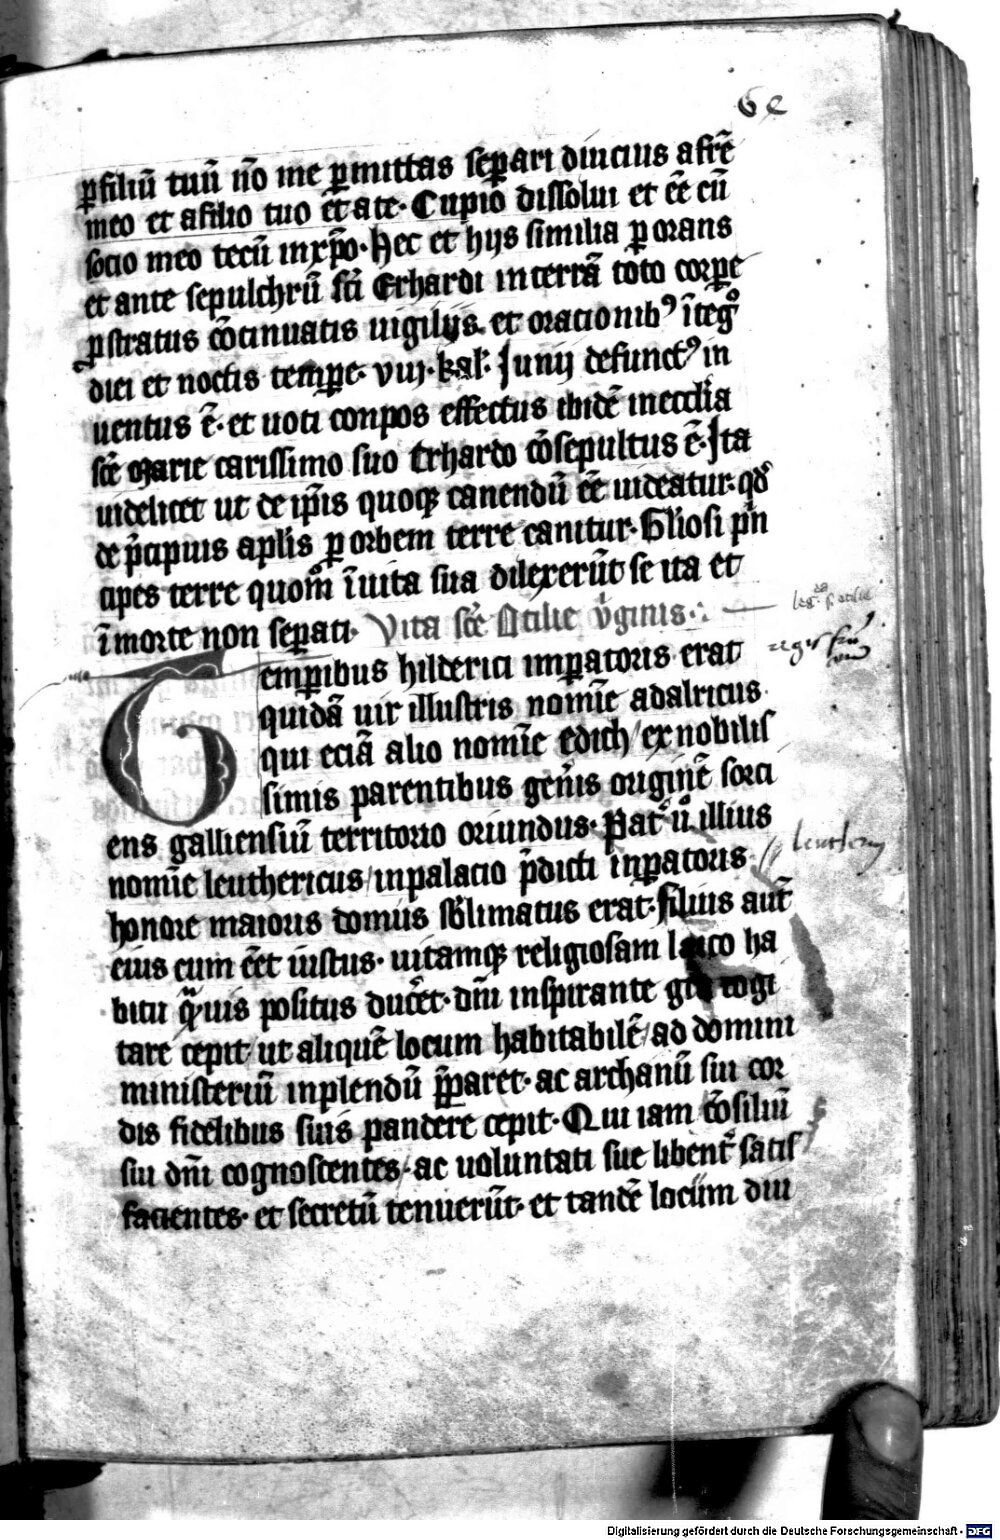 6e
ꝑfiliū tuū nō me ꝑmittas seꝑari diucius afrē
meo et afilio tuo et ate· Cupio dissolui et eē cū
socio meo tecū inxp̄o· Hec et hijs similia ꝑ orans
et ante sepulchrū sc̄i Erhardi interrā toto corꝑe
ꝓstratus cōtinuatis uigilijs et oracionibꝰ ītegͦ
diei et noctis temꝑe· viij· kal· Junij defunctꝰ in
uentus ē· et uoti conpos effectus ibidē ineccl̄ia
sc̄e Marie carissimo suo Erhardo cōsepultus ē· Ita
uidelicet ut de ip̄is quoqꝫ canendū eē uideatur· qd̄
de p̄cipuis apl̄is ꝑ orbem terre canitur· Gl̄iosi p̄n
cipes terre quom̊ ī uita sua dilexerūt se ita et
ī morte non seꝑati· Vita sc̄e Otilie v̄ginis·
leg· s· otilie
Temꝑibus hilderici imꝑatoris erat
quidā uir illustris nomīe adalricus
qui eciā alio nomīe edich/ ex nobilis
simis parentibus gen̄is originē sorci
ens galliensiū territorio oriundus· Pat̄ uͦ illius
nomīe leuthericus/ inpalacio p̄dicti inꝑatoris //
honore maioris domus sb̄limatus erat· filius aut̄
eius cum eēt iustus· uitamqꝫ religiosam laico ha
bitu qͣuis positus duc̄et· dn̄i inspirante grā cogi
tare cepit/ ut aliquē locum habitabilē/ ad domini
ministeriū inplendū p̄ꝑaret· ac archanū sui cor
dis fidelibus suis pandere cepit· Qui iam cōsiliū
sui dn̄i cognoscentes/ ac uoluntati sue libent̄ satis
facientes· et secretū tenuerūt· et tandē locum diu
Digitalisierung gefördert durch die Deutsche Forschungsgemeinschaft - DFG